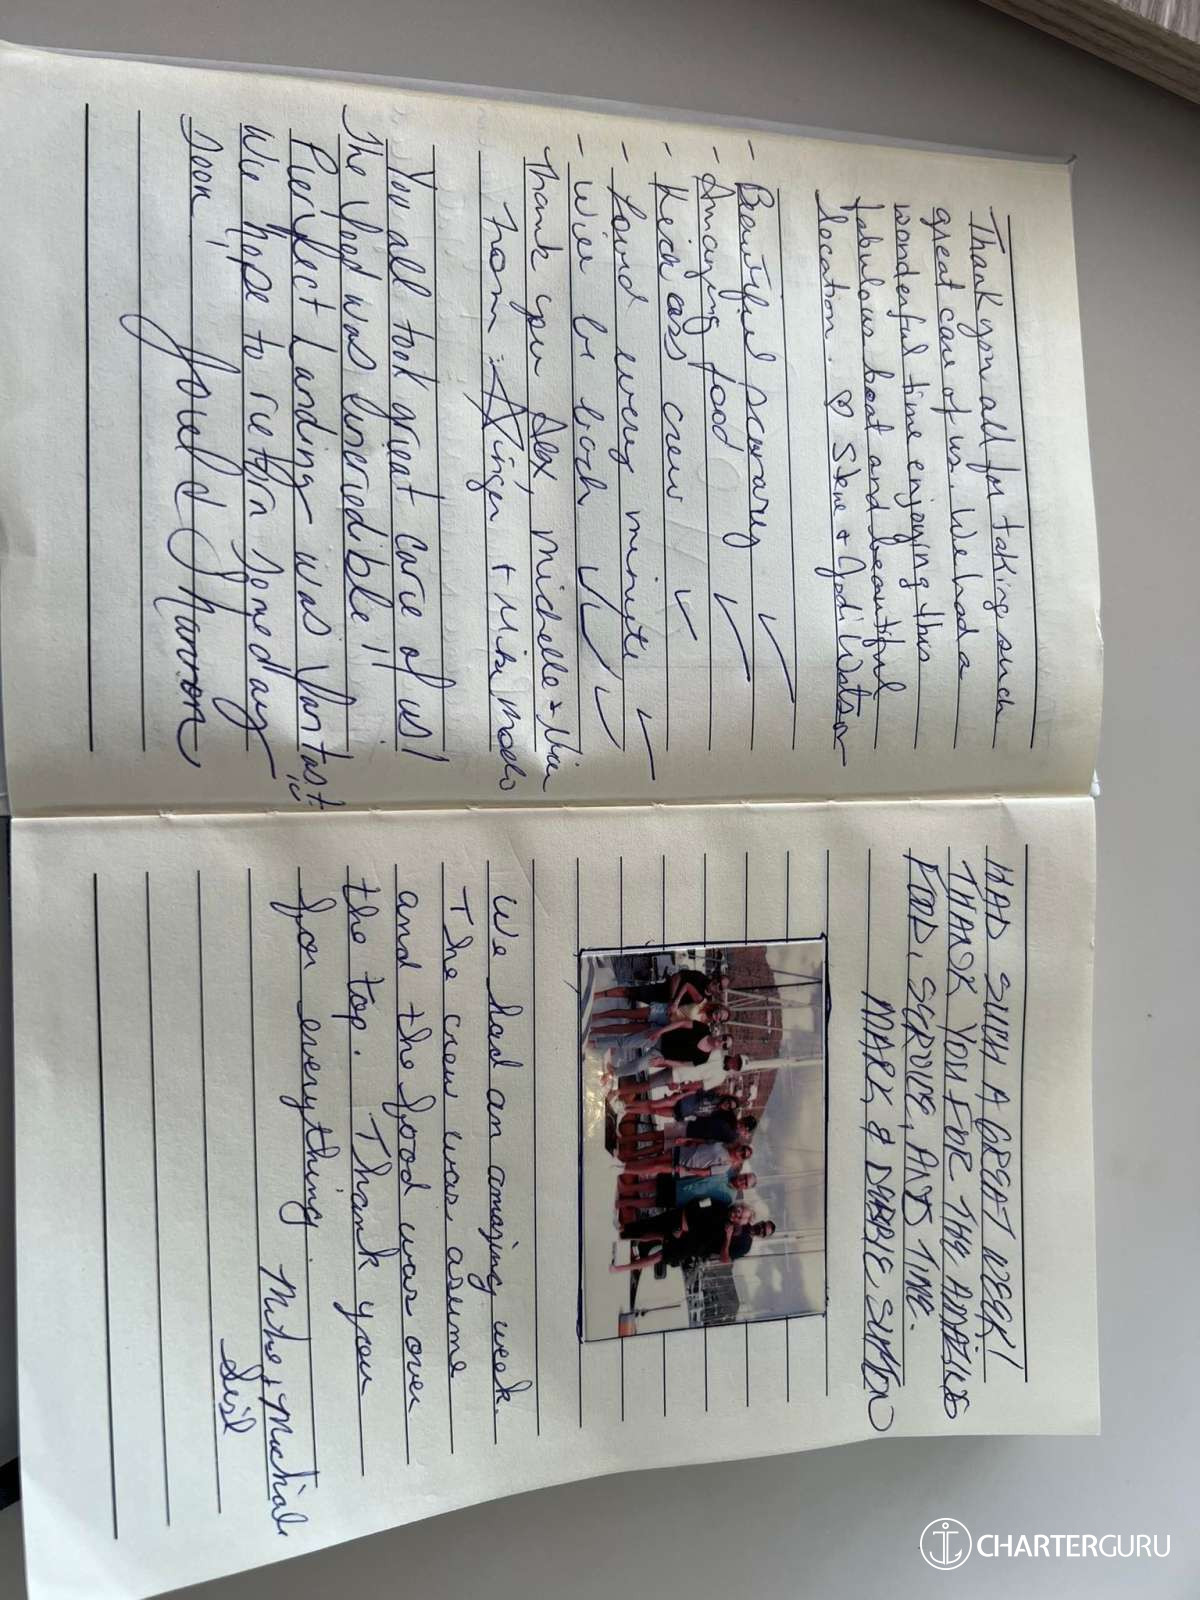 Thank you all for taking such
great care of us. We had a
wonderful time enjoying this
fabulous boat and beautiful
location. ♡ Steve + Jodi Watson
- Beautiful scenery ✓
- Amazing food ✓
- Kick ass crew ✓
- Loved every minute ✓
- Will be back ✓✓✓
Thank you Alex, Michelle +
From Ginger + Mike
You all took great care of us!
The food was incredible!!
Perfect Landing was fantast.
We hope to return someday
soon! Joel & Sharron
HAD SUCH A GREAT WEEK!
THANK YOU FOR THE AMAZING
FOOD, SERVICE, AND TIME.
MARK & DEBBIE SUTTON
We had an amazing week.
The crew was assume
and the food was over
the top. Thank you
for everything.
Mike + Machial
CHARTERGURU